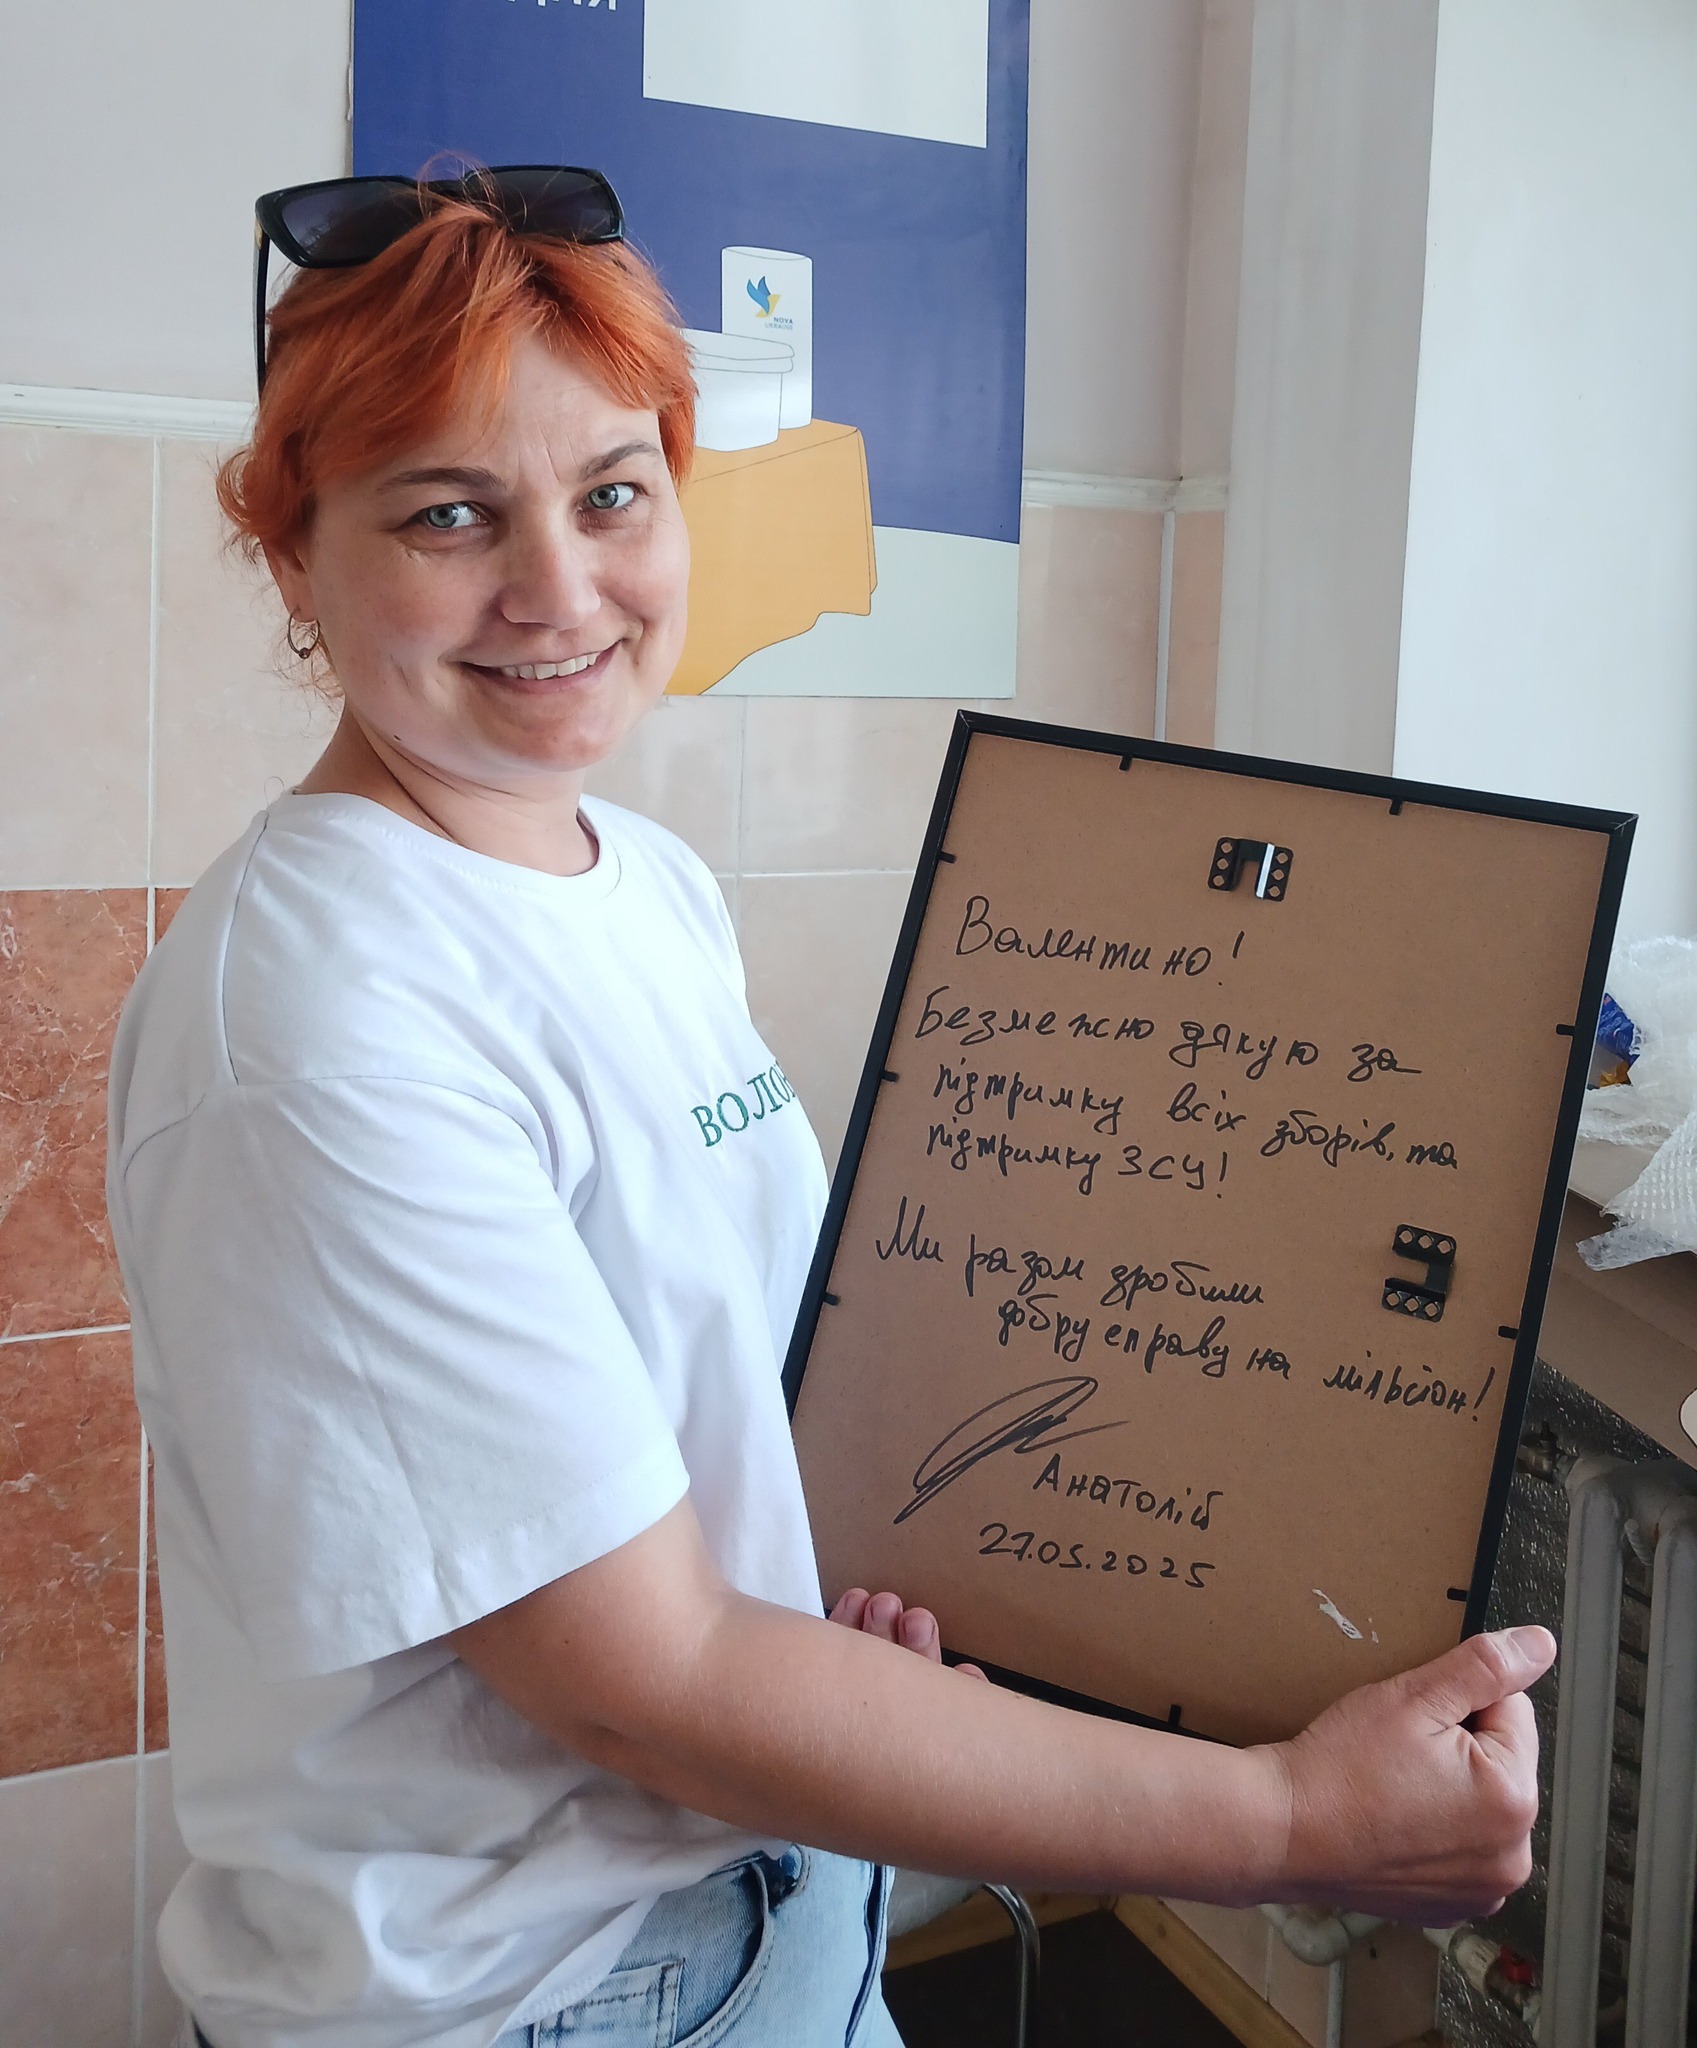 NOVA
UKRAINE
ВОЛОН
Валентино!
Безмежно дякую за
підтримку всіх зборів, та
підтримку ЗСУ!
Ми разом зробили
добру справу на мільйон!
Анатолій
27.05.2025